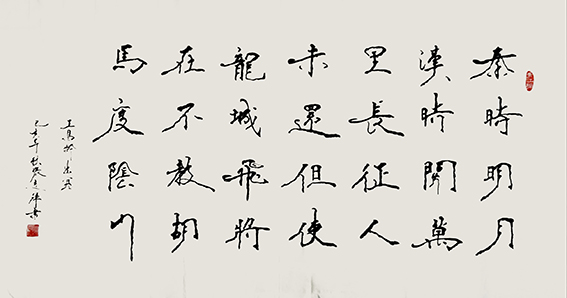 秦時明月
漢時關萬
里長征人
未還但使
龍城飛將
在不教胡
馬度陰山
王昌龄出塞
己亥年
書